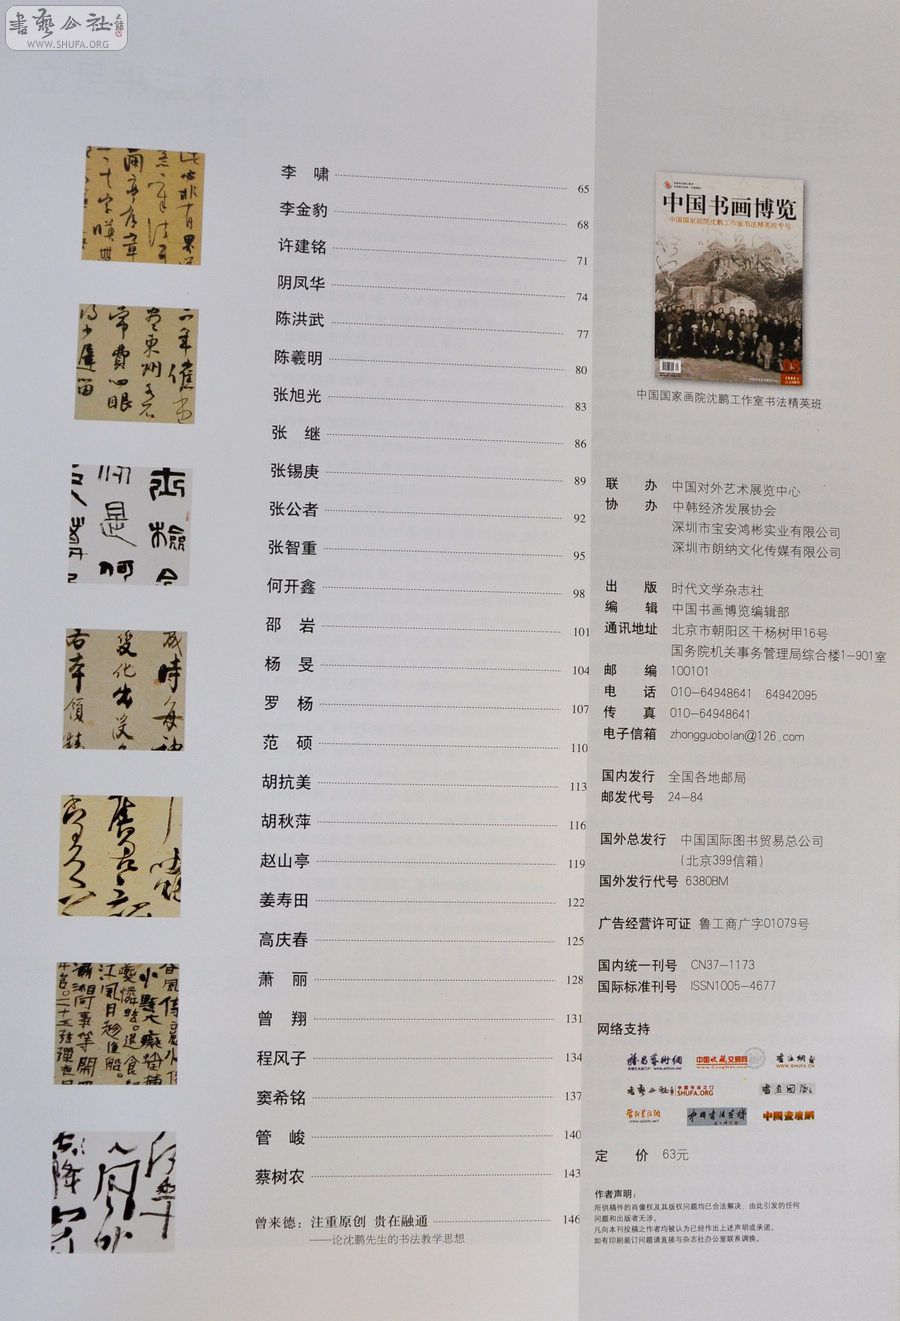 書藝公社
WWW.SHUFA.ORG
李 啸 65
李金豹 68
许建铭 71
阴凤华 74
陈洪武 77
陈羲明 80
张旭光 83
张 继 86
张锡庚 89
张公者 92
张智重 95
何开鑫 98
邵 岩 101
杨 旻 104
罗 杨 107
范 硕 110
胡抗美 113
胡秋萍 116
赵山亭 119
姜寿田 122
高庆春 125
萧 丽 128
曾 翔 131
程风子 134
窦希铭 137
管 峻 140
蔡树农 143
曾来德：注重原创 贵在融通 146
——论沈鹏先生的书法教学思想
中国书画博览
中国国家画院沈鹏工作室书法精英班专号
中国国家画院沈鹏工作室书法精英班
联 办 中国对外艺术展览中心
协 办 中韩经济发展协会
深圳市宝安鸿彬实业有限公司
深圳市朗纳文化传媒有限公司
出 版 时代文学杂志社
编 辑 中国书画博览编辑部
通讯地址 北京市朝阳区干杨树甲16号
国务院机关事务管理局综合楼1-901室
邮 编 100101
电 话 010-64948641 64942095
传 真 010-64948641
电子信箱 zhongguobolan@126.com
国内发行 全国各地邮局
邮发代号 24-84
国外总发行 中国国际图书贸易总公司
(北京399信箱)
国外发行代号 6380BM
广告经营许可证 鲁工商广字01079号
国内统一刊号 CN37-1173
国际标准刊号 ISSN1005-4677
网络支持
中国收藏交易网
SHUFA.ORG
中國書法藝術
中國書畫網
定 价 63元
作者声明：
所供稿件的肖像权及其版权问题均已合法解决，由此引发的任何
问题和出版者无涉。
凡向本刊投稿之作者均被认为已经作出上述声明或承诺。
如有印刷装订问题请直接与杂志社办公室联系调换。